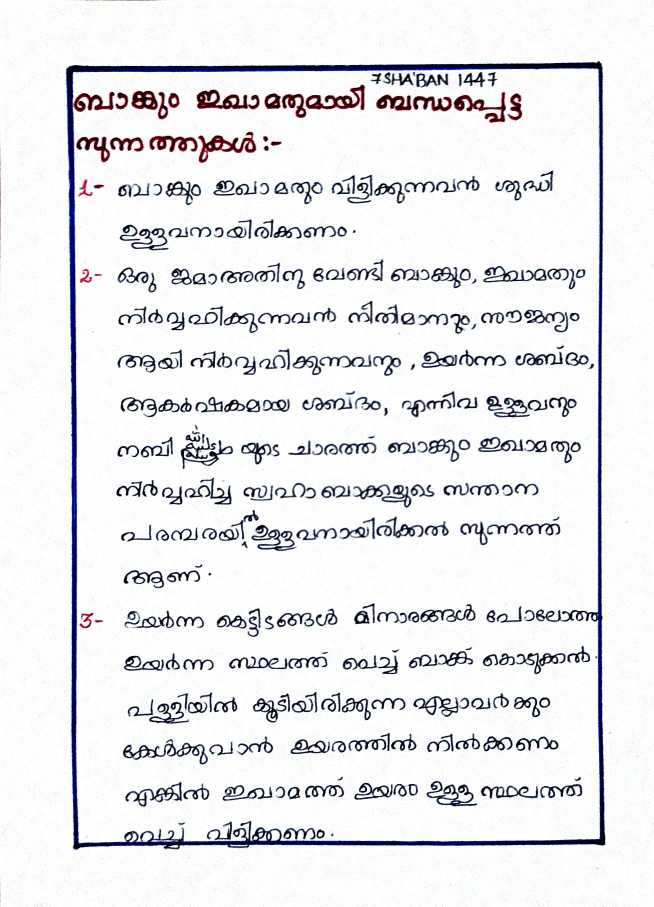 7 SHA'BAN 1447
ബാങ്കും ഇഖാമതുമായി ബന്ധപ്പെട്ട
സുന്നത്തുകൾ :-
1- ബാങ്കും ഇഖാമതും വിളിക്കുന്നവൻ ശുദ്ധി
ഉള്ളവനായിരിക്കണം.
2- ഒരു ജമാഅതിനു വേണ്ടി ബാങ്കും, ഇഖാമതും
നിർവ്വഹിക്കുന്നവൻ നീതിമാനും, സൗജന്യം
ആയി നിർവ്വഹിക്കുന്നവനും, ഉയർന്ന ശബ്ദം,
ആകർഷകമായ ശബ്ദം, എന്നിവ ഉള്ളവനും
നബി ﷺ യുടെ ചാരത്ത് ബാങ്കും ഇഖാമതും
നിർവ്വഹിച്ച സ്വഹാബാക്കളുടെ സന്താന
പരമ്പരയിൽ ഉള്ളവനായിരിക്കൽ സുന്നത്ത്
ആണ്.
3- ഉയർന്ന കെട്ടിടങ്ങൾ മിനാരങ്ങൾ പോലോത്ത
ഉയർന്ന സ്ഥലത്ത് വെച്ച് ബാങ്ക് കൊടുക്കൽ.
പള്ളിയിൽ കൂടിയിരിക്കുന്ന എല്ലാവർക്കും
കേൾക്കുവാൻ ഉയരത്തിൽ നിൽക്കണം
എങ്കിൽ ഇഖാമത്ത് ഉയരം ഉള്ള സ്ഥലത്ത്
വെച്ച് വിളിക്കണം.